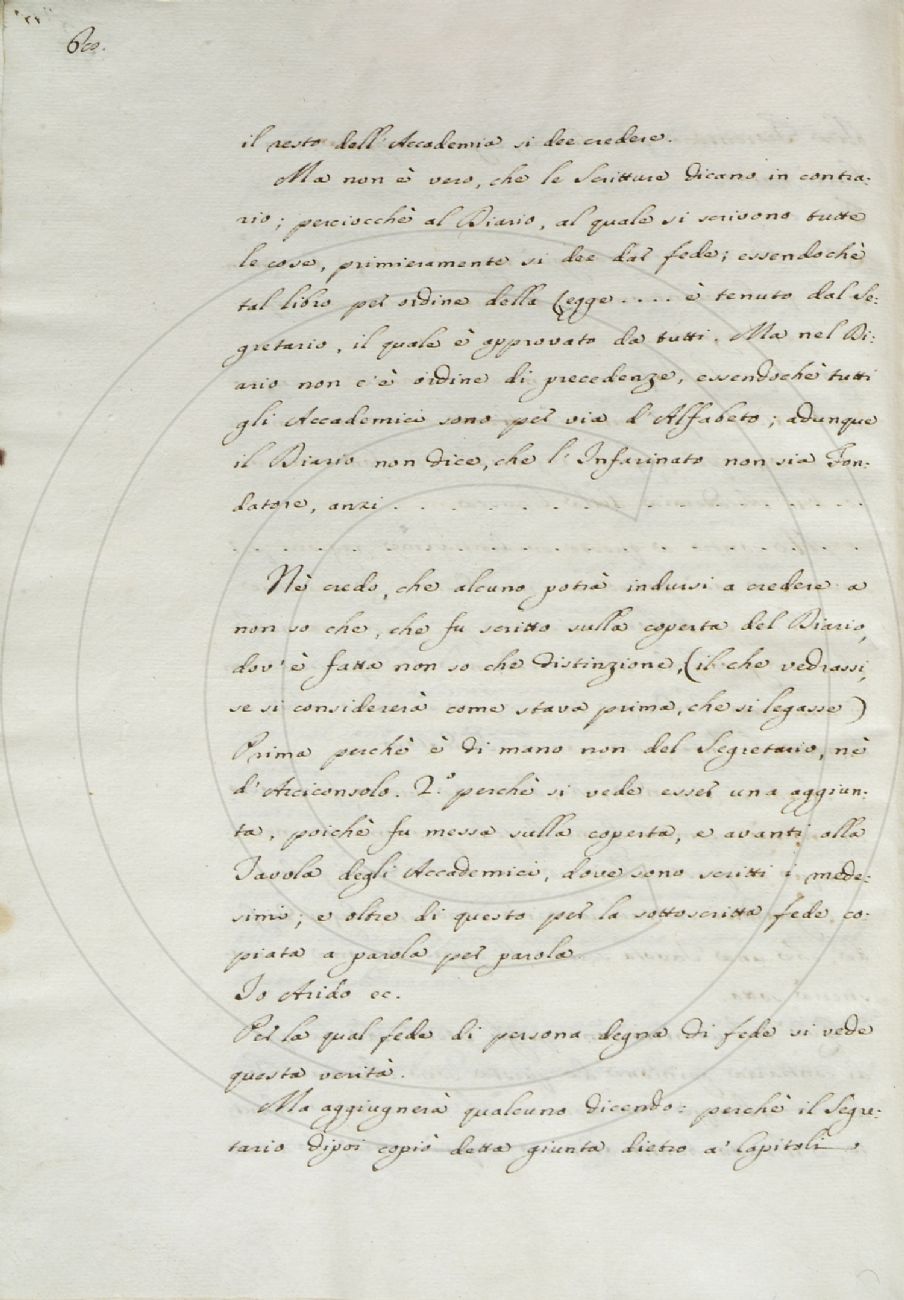 il resto dell'Accademia si dee credere.
Ma non è vero, che le Scritture dicano in contra:
rio; perciocchè al Diario, al quale si scrivono tutte
le cose, primieramente si dee dar fede; essendochè
tal libro per ordine della Legge .... è tenuto dal Se:
gretario, il quale è approvato da tutti. Ma nel Di:
ario non c'è ordine di precedenze, essendochè tutti
gli Accademici sono per via d'Alfabeto; adunque
il Diario non dice, che l'Infarinato non sia Fon:
datore, anzi . . . . . . . . . . . . . .
. . . . . . . . . . . . . . . . . .
Nè credo, che alcuno potrà indursi a credere a
non so che, che fu scritto sulla coperta del Diario,
dov'è fatta non so che distinzione, (il che vedrassi,
se si considererà come stava prima, che si legasse)
Prima perchè è di mano non del Segretario, nè
d'Arciconsolo. 2.º perchè si vede esser una aggiun:
ta, poichè fu messa sulla coperta, e avanti alla
Tavola degli Accademici, dove sono scritti i mede:
simi; e oltre di questo per la sottoscritta fede co:
piata a parola per parola.
Io Arido ec.
Per la qual fede di persona degna di fede si vede
questa verità.
Ma aggiugnerà qualcuno dicendo: perchè il Segre:
tario dipoi copiò detta giunta dietro a' Capitoli